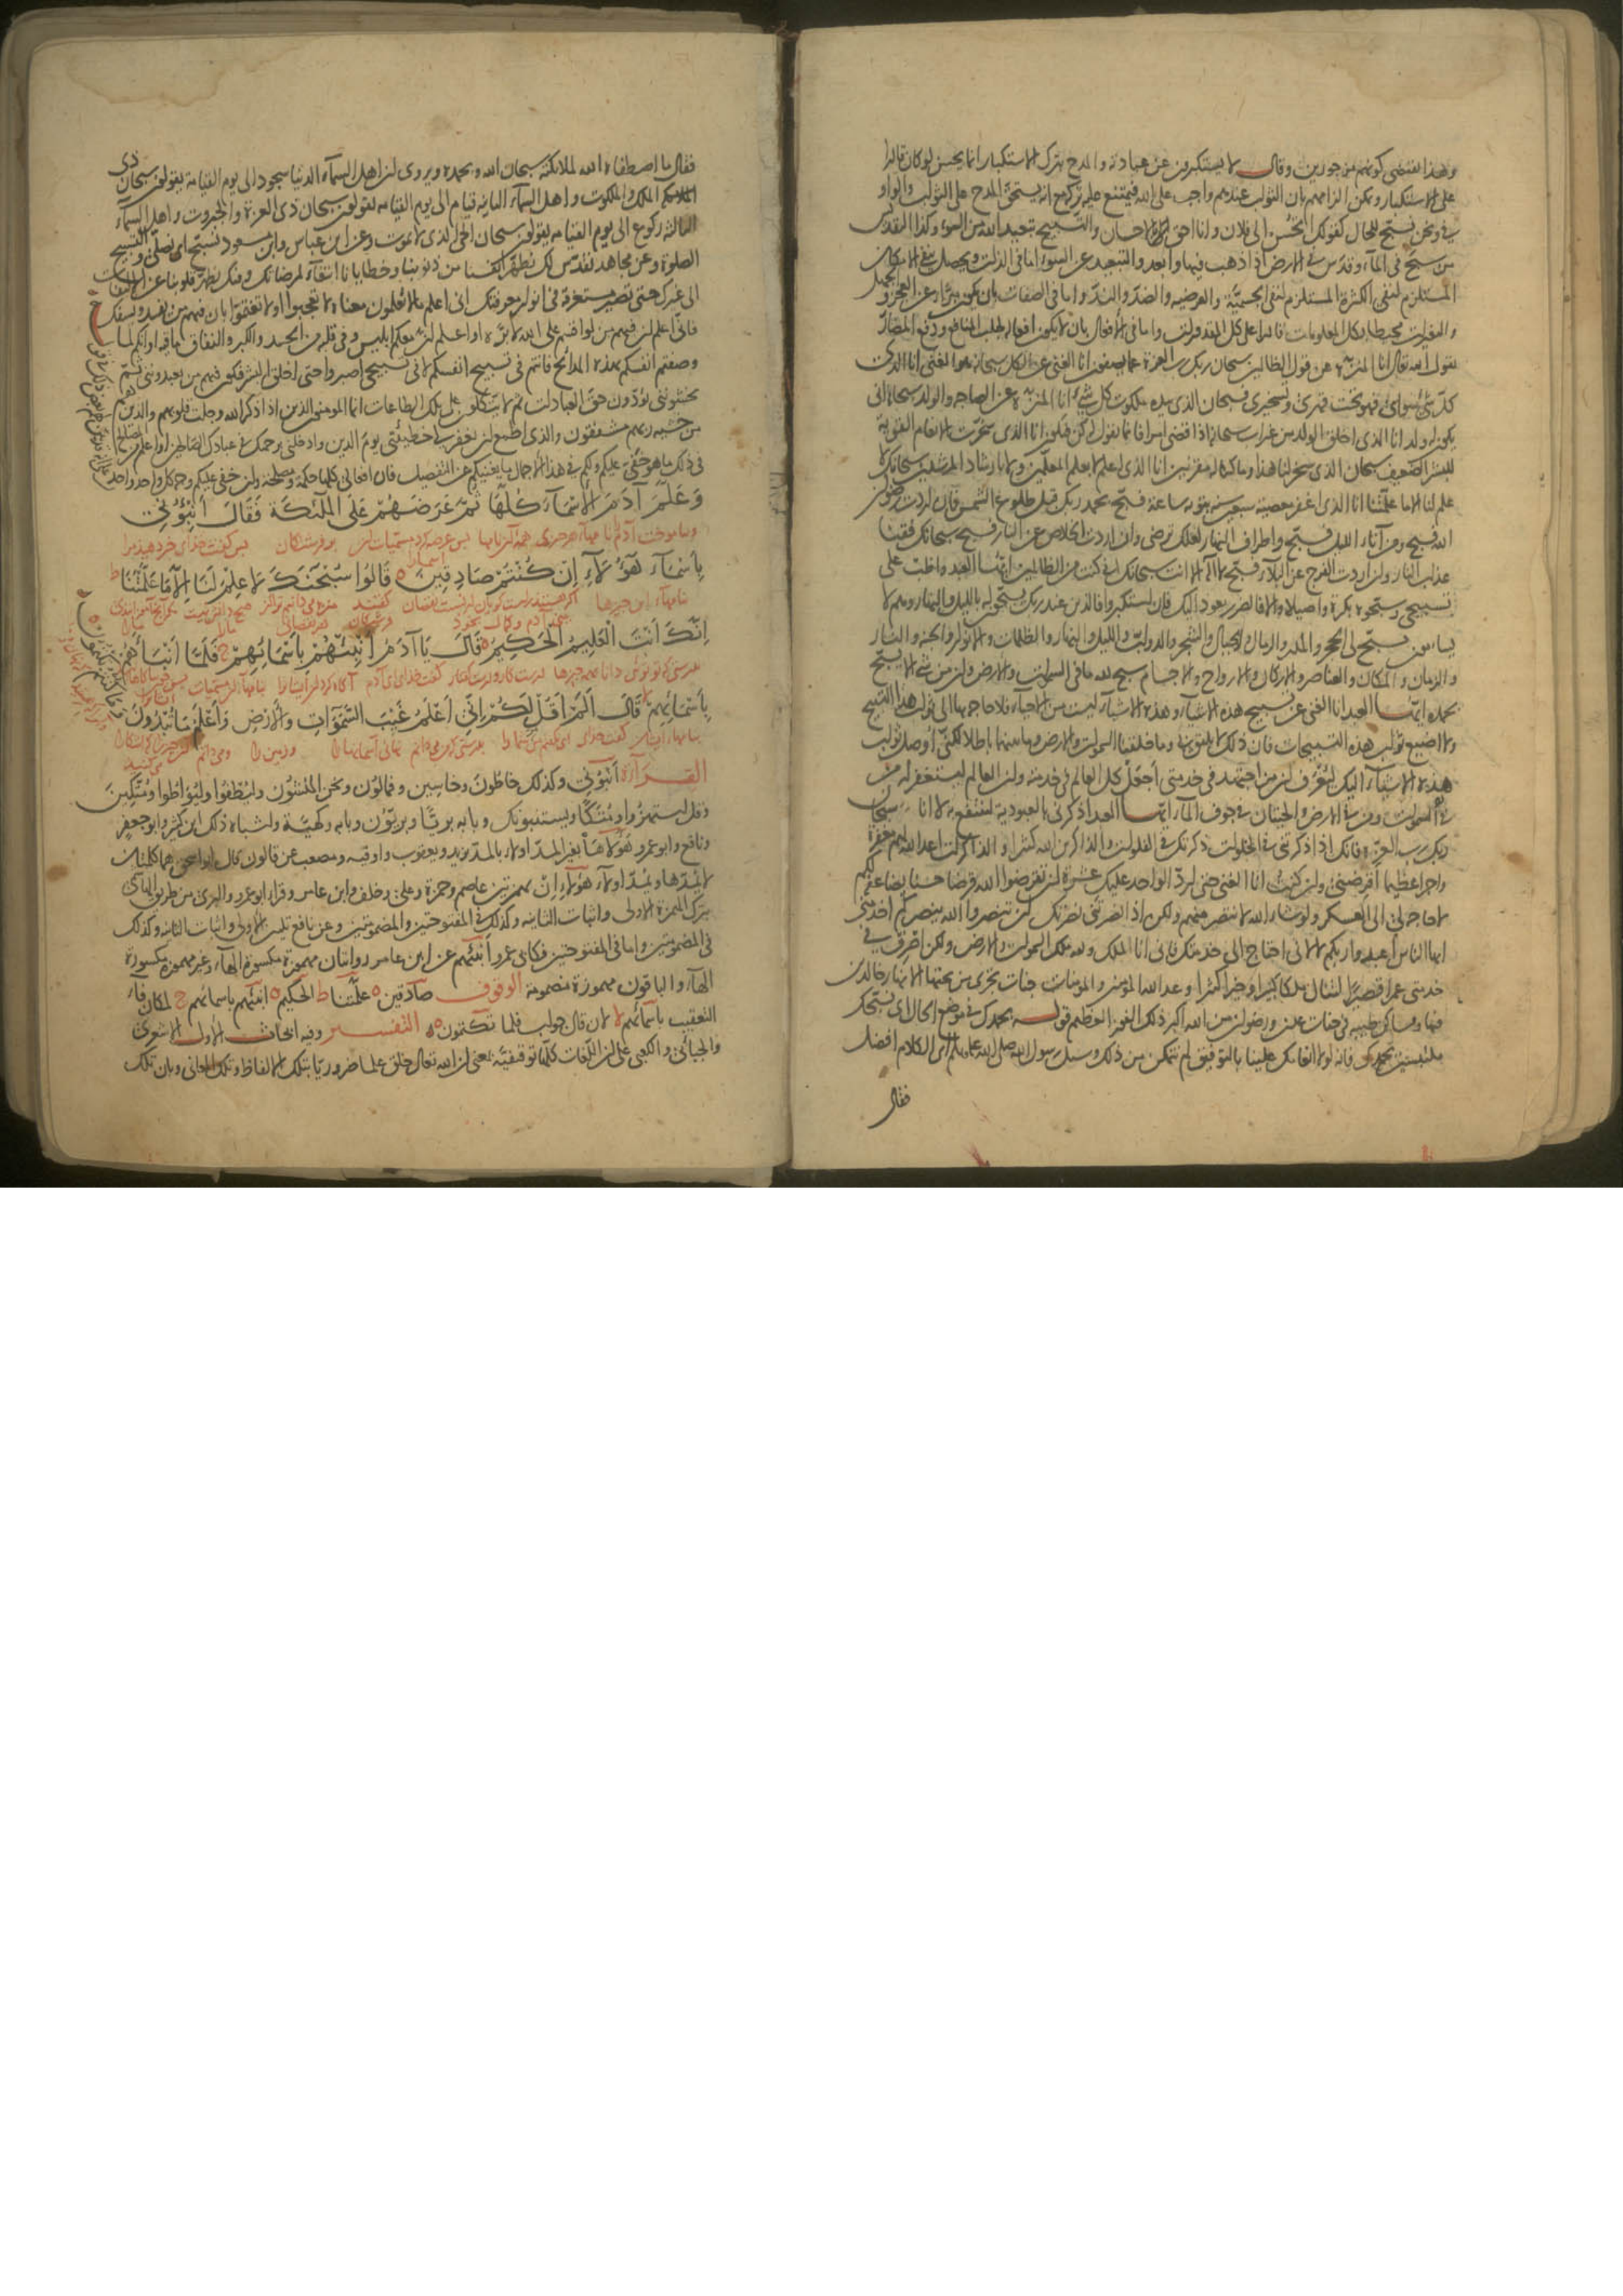 وهذا يقتضي كونهم مزجورين وقال لا يستكبرون عن عبادته والمدح بترك الاستكبار انما يحسن لو كان قادرا
على الاستكبار ويمكن الزامهم بان الثواب عندهم واجب على الله فيمتنع عليه تركه مع انه يستحق المدح على الثواب والواو
في ونحن نسبح للحال كقولك اتحسن الى فلان وانا احق بالاحسان والتسبيح تبعيد الله من السوء وكذا التقديس
من سبح في الماء وقدس في الارض اذا ذهب فيها وابعد والتبعيد عن السوء اما في الذات ويحصل بنفي الامكان
المستلزم لنفي الكثرة المستلزم لنفي الجسمية والعرضية والضد والند واما في الصفات بان يكون مبرأ عن العجز والجهل
والتغيرات محيطا بكل المعلومات قادرا على كل المقدورات واما في الافعال بان لا يكون افعاله لجلب المنافع ودفع المضار
يقول الله تعالى انا المنزه عن قول الظالمين سبحان ربك رب العزة عما يصفون انا الغني عن الكل سبحانه هو الغني انا الذي
كل شئ سوائي فهو تحت قهري وتسخيري فسبحان الذي بيده ملكوت كل شئ انا المنزه عن الصاحبة والولد سبحانه انى
يكون له ولد انا الذي اخلق الولد من غير اب سبحانه اذا قضى امرا فانما يقول له كن فيكون انا الذي سخرت الانعام القوية
للبشر الضعيف سبحان الذي سخر لنا هذا وما كنا له مقرنين انا الذي اعلم لا بعلم المعلمين ولا بارشاد المرشدين سبحانك لا
علم لنا الا ما علمتنا انا الذي اغفر معصية سبعين سنة بتوبة ساعة فسبح بحمد ربك قبل طلوع الشمس فان اردت رضوان
الله فسبح ومن آناء الليل فسبح واطراف النهار لعلك ترضى وان اردت الخلاص عن النار فسبح سبحانك فقنا
عذاب النار وان اردت الفرج عن البلاء فسبح لا اله الا انت سبحانك اني كنت من الظالمين ايها العبد واظب على
تسبيحي وسبحوه بكرة واصيلا والا فالضرر يعود اليك فان استكبروا فالذين عند ربك يسبحون له بالليل والنهار وهم لا
يسأمون يسبح لي الحجر والمدر والرمال والجبال والشجر والدواب والليل والنهار والظلمات والانوار والجنة والنار
والزمان والمكان والعناصر والاركان والارواح والاجسام سبح لله ما في السموات والارض وان من شئ الا يسبح
بحمده ايها العبد انا الغني عن تسبيح هذه الاشياء وهذه الاشياء ليست من الاحياء فلا حاجة بها الى ثواب هذا التسبيح
ولا اضيع ثواب هذه التسبيحات فان ذلك لا يليق بي وما خلقنا السموات والارض وما بينهما باطلا لكني اوصل ثواب
هذه الاشياء اليك ليعرف ان من اجتهد في خدمتي اجعل كل العالم في خدمته وان العالم ليستغفر له من
في السموات ومن في الارض والحيتان في جوف الماء ايها العبد اذكرني بالعبودية لتنتفع به لا انا سبحان
ربك رب العزة فانك اذا ذكرتني في الخلوات ذكرتك في الفلوات والذاكرين الله كثيرا والذاكرات اعد الله لهم مغفرة
واجرا عظيما اقرضني وان كنت انا الغني حتى ارد الواحد عليك عشرة ان تقرضوا الله قرضا حسنا يضاعفه لكم
لا حاجة لي الى العسكر ولو شاء الله لانتصر منهم ولكن اذا نصرتني نصرتك ان تنصروا الله ينصركم اخدمني
ايها الناس اعبدوا ربكم لا لاني احتاج الى خدمتك فاني انا الملك ولله ملك السموات والارض ولكن اصرف في
خدمتي عمرا قصيرا لتنال ملكا كبيرا وخيرا كثيرا وعد الله المؤمنين والمؤمنات جنات تجري من تحتها الانهار خالدين
فيها ومساكن طيبة في جنات عدن ورضوان من الله اكبر ذلك الفوز العظيم قوله بحمدك في موضع الحال اي نسبحك
ملتبسين بحمدك فانه لولا انعامك علينا بالتوفيق لم نتمكن من ذلك وسئل رسول الله صلى الله عليه وسلم اي الكلام افضل
فقال
فقال ما اصطفاه الله لملائكته سبحان الله وبحمده ويروى ان اهل السماء الدنيا سجود الى يوم القيامة يقولون سبحان ذي
الملك والملكوت واهل السماء الثانية قيام الى يوم القيامة يقولون سبحان ذي العزة والجبروت واهل السماء
الثالثة ركوع الى يوم القيامة يقولون سبحان الحي الذي لا يموت وعن ابن عباس وابن مسعود نسبح اي نصلي والتسبيح
الصلوة وعن مجاهد نقدس لك نطهر انفسنا من ذنوبنا وخطايانا ابتغاء لمرضاتك وقيل نطهر قلوبنا عن الالتفات
الى غيرك حتى تصير مستغرقة في انوار معرفتك اني اعلم ما لا تعلمون معناه لا تعجبوا او لا تغتموا بان فيهم من يفسد ويسفك
فاني اعلم ان فيهم من لو اقسم على الله لابره او اعلم ان معكم ابليس وفي قلبه من الحسد والكبر والنفاق ما فيه او انكم لما
وصفتم انفسكم بهذه المدائح فانتم في تسبيح انفسكم لا في تسبيحي اصبروا حتى اخلق البشر فيكون فيهم من يعبدونني ثم
يخشونني يؤدون حق العبادات ثم لا يتكلون على تلك الطاعات انما المؤمنون الذين اذا ذكر الله وجلت قلوبهم والذين هم
من خشية ربهم مشفقون والذي اطمع ان يغفر لي خطيئتي يوم الدين وادخلني برحمتك في عبادك الصالحين او اعلم من المصالح
في ذلك ما هو خفي عليكم ولكم في هذا الاجمال ما يغنيكم عن التفصيل فان افعالي كلها حكمة ومصلحة وان خفي عليكم وجه كل واحد واحد
وَعَلَّمَ آدَمَ الْاَسْمَآءَ كُلَّهَا ثُمَّ عَرَضَهُمْ عَلَى الْمَلٰٓئِكَةِ فَقَالَ اَنْبِؤُنِي
وبياموخت آدم را نامهاء هر چيزي همه آن نامها پس عرضه كرد مسميات آن بر فرشتكان پس كفت خداى خبر دهيد مرا
بِاَسْمَآءِ هٰٓؤُلَآءِ اِنْ كُنْتُمْ صَادِقِينَ ۝ قَالُوا سُبْحٰنَكَ لَا عِلْمَ لَنَا اِلَّا مَا عَلَّمْتَنَا ط
بنامهاء اين چيزها
اِنَّكَ اَنْتَ الْعَلِيمُ الْحَكِيمُ ۝ قَالَ يَا آدَمُ اَنْبِئْهُمْ بِاَسْمَائِهِمْ ج فَلَمَّا اَنْبَأَهُمْ
بدرستي كه تو توئي دانا بهمه چيزها درست كار و درست كفتار كفت خداى اى آدم آكاه كردان ايشانرا بنامهاء آن مسميات
بِاَسْمَائِهِمْ لا قَالَ اَلَمْ اَقُلْ لَكُمْ اِنِّي اَعْلَمُ غَيْبَ السَّمٰوَاتِ وَالْاَرْضِ وَاَعْلَمُ مَا تُبْدُونَ
وَمَا كُنْتُمْ تَكْتُمُونَ ۝
القراآت اَنْبِؤُنِي وكذلك خاطون وخاسين وفمالون ونحن المنشئون وليطفوا وليواطوا ومتكين
وقل استهزؤا ومتكا ويستنبونك وبابه بريا وبريؤن وبابه وكهية واشباه ذلك ابن كثير وابو جعفر
ونافع وابو عمرو هؤلاء بغير المد اولاء بالمد يزيد ويعقوب واوقية ومصعب عن قالون قال ابو اسحق هما كلمتان
لا يمدها ويمد اولاء هؤلاء ان بهمزتين عاصم وحمزة وعلي وخلف وابن عامر وقرا ابو عمرو والبزي من طريق الهاشمي
بترك الهمزة الاولى واثبات الثانية وكذلك في المفتوحتين والمضمومتين وعن نافع تليين الاولى واثبات الثانية وكذلك
في المضمومتين واما في المفتوحتين فكابي عمرو انبئهم عن ابن عامر روايتان مهموزة مكسورة الهاء وغير مهموزة مكسورة
الهاء والباقون مهموزة مضمومة الوقوف صادقين ۝ علمتنا ط الحكيم ۝ انبئهم باسمائهم ج لمكان فاء
التعقيب باسمائهم لا لان قال جواب فلما تكتمون ۝ التفسير وفيه ابحاث الاول الاشعري
والجبائي والكعبي على ان اللغات كلها توقيفية بمعنى ان الله تعالى خلق علما ضروريا بتلك الالفاظ وتلك المعاني وبان تلك